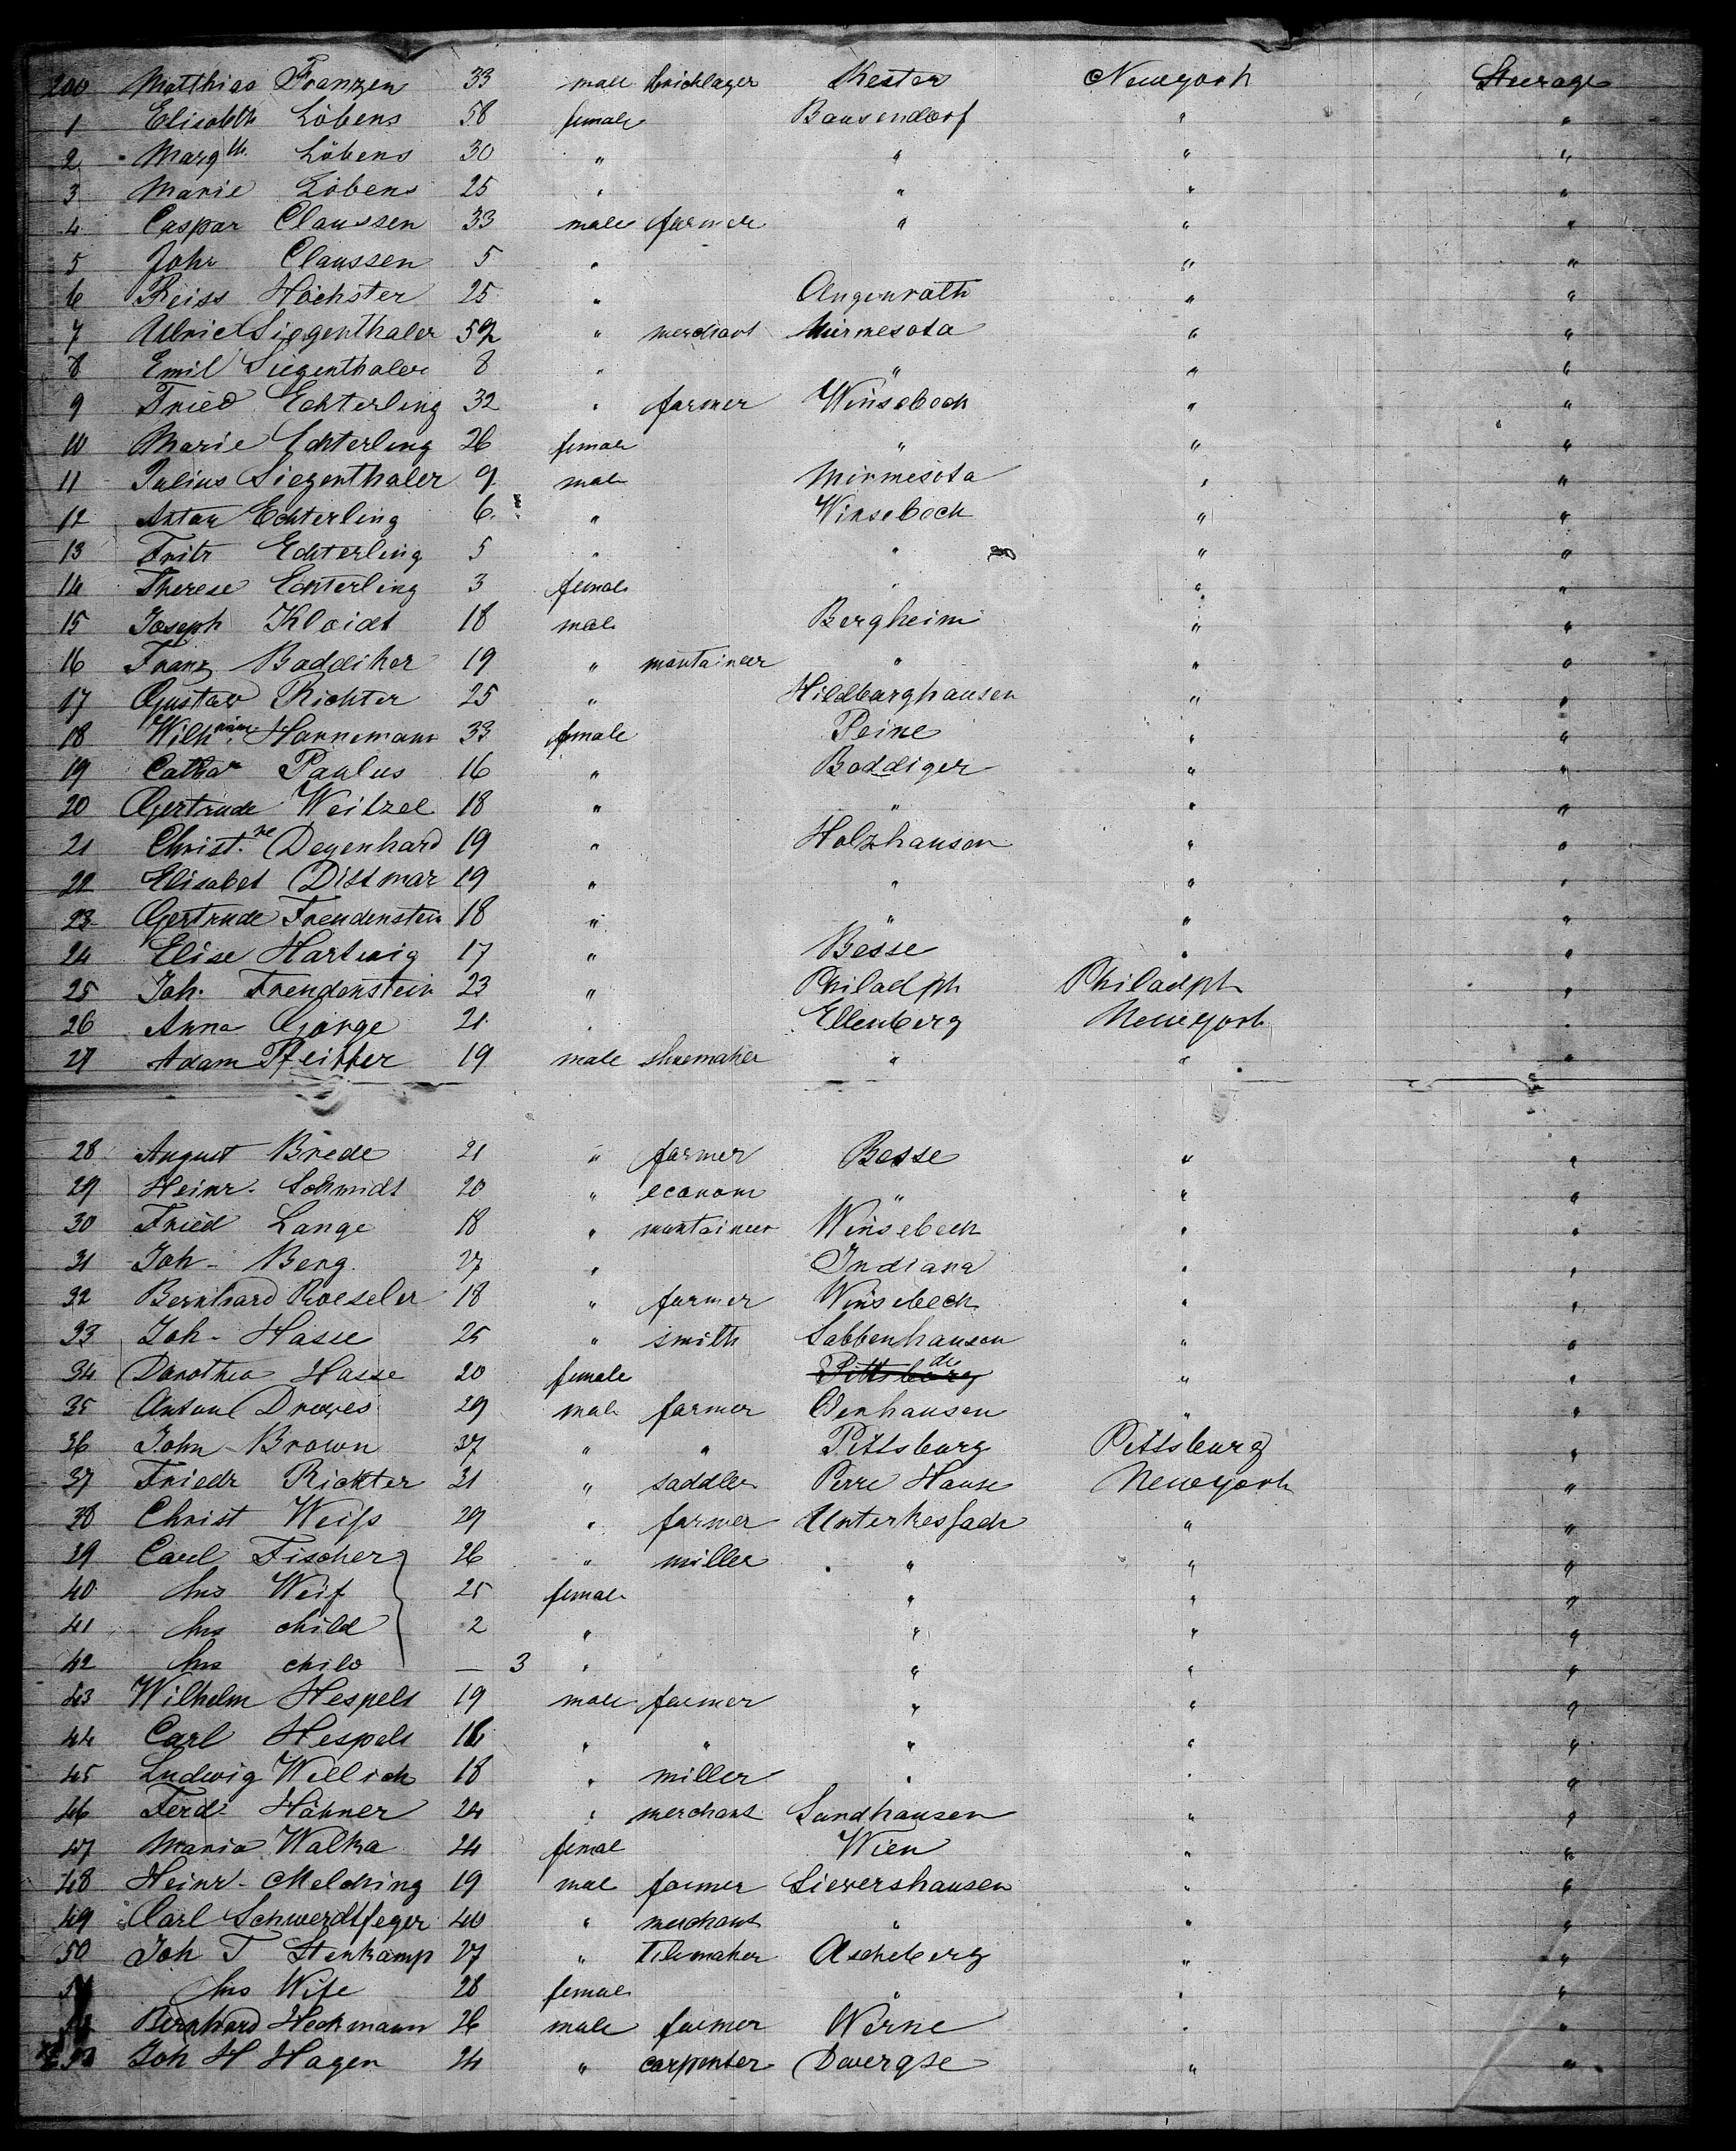 200 Matthias Franzen 33 male bricklager Kester Newyork Steerage
1 Elisabeth Löbens 58 female Bausendorf " "
2 Margth. Löbens 30 " " " "
3 Marie Löbens 25 " " " "
4 Caspar Claussen 33 male farmer " " "
5 Joh Claussen 5 " " "
6 Reiss Höchster 25 " Angenrath " "
7 Ulrich Siegenthaler 52 " merchant Minnesota " "
8 Emil Siegenthaler 8 " " " "
9 Fried Echterling 32 " farmer Winsebeck " "
10 Marie Echterling 26 female " " "
11 Julius Siegenthaler 9 male Minnesota " "
12 Anton Echterling 6 " Winsebeck " "
13 Fritz Echterling 5 " " " "
14 Therese Echterling 3 female " " "
15 Joseph Kloidt 18 male Bergheim " "
16 Franz Baddiker 19 " mountaineer " " "
17 Gustav Richter 25 " Hildburghausen " "
18 Wilhmine Hannemann 33 female Peine " "
19 Catha Paulus 16 " Boddiger " "
20 Gertrude Weitzel 18 " " " "
21 Christ.ne Degenhard 19 " Holzhausen " "
22 Elisabet Dittmar 19 " " " "
23 Gertrude Freudenstein 18 " " " "
24 Elise Hartwig 17 " Besse " "
25 Joh. Freudenstein 23 " Philadph Philadph "
26 Anna George 21 " Ellenberg Newyork "
27 Adam Pfeiffer 19 male shoemaker " " "
28 August Brede 21 " farmer Besse " "
29 Heinr. Schmidt 20 " econom " " "
30 Fried Lange 18 " mountaineer Winsebeck " "
31 Joh- Berg 27 " Indiana " "
32 Bernhard Roeseler 18 " farmer Winsebeck " "
33 Joh- Hasse 25 " smith Sabbenhausen " "
34 Dorothea Hasse 20 female Pittsburg do " "
35 Anton Drewes 29 male farmer Oenhausen " "
36 John Brown 37 " " Pittsburg Pittsburg "
37 Friedr Richter 31 " saddler Perre Hause Newyork "
38 Christ Weiss 29 " farmer Unterkessach " "
39 Carl Fischer 26 " miller " " "
40 his Weif 25 female " " "
41 his child 2 " " " "
42 his child — 3 " " " "
43 Wilhelm Hespelt 19 male farmer " " "
44 Carl Hespelt 16 " " " " "
45 Ludwig Wellich 18 " miller " " "
46 Ferd Hähner 24 " merchant Sundhausen " "
47 Maria Walka 24 femal Wien " "
48 Heinr- Melching 19 mal farmer Sievershausen " "
49 Carl Schwerdtfeger 40 " merchant " " "
50 Joh T Stenkamp 27 " Tilemaker Ascheberg " "
51 his Wife 28 female " " "
Bernhard Heckmann 26 male farmer Werne " "
253 Joh H Hagen 24 " carpenter Davergse " "